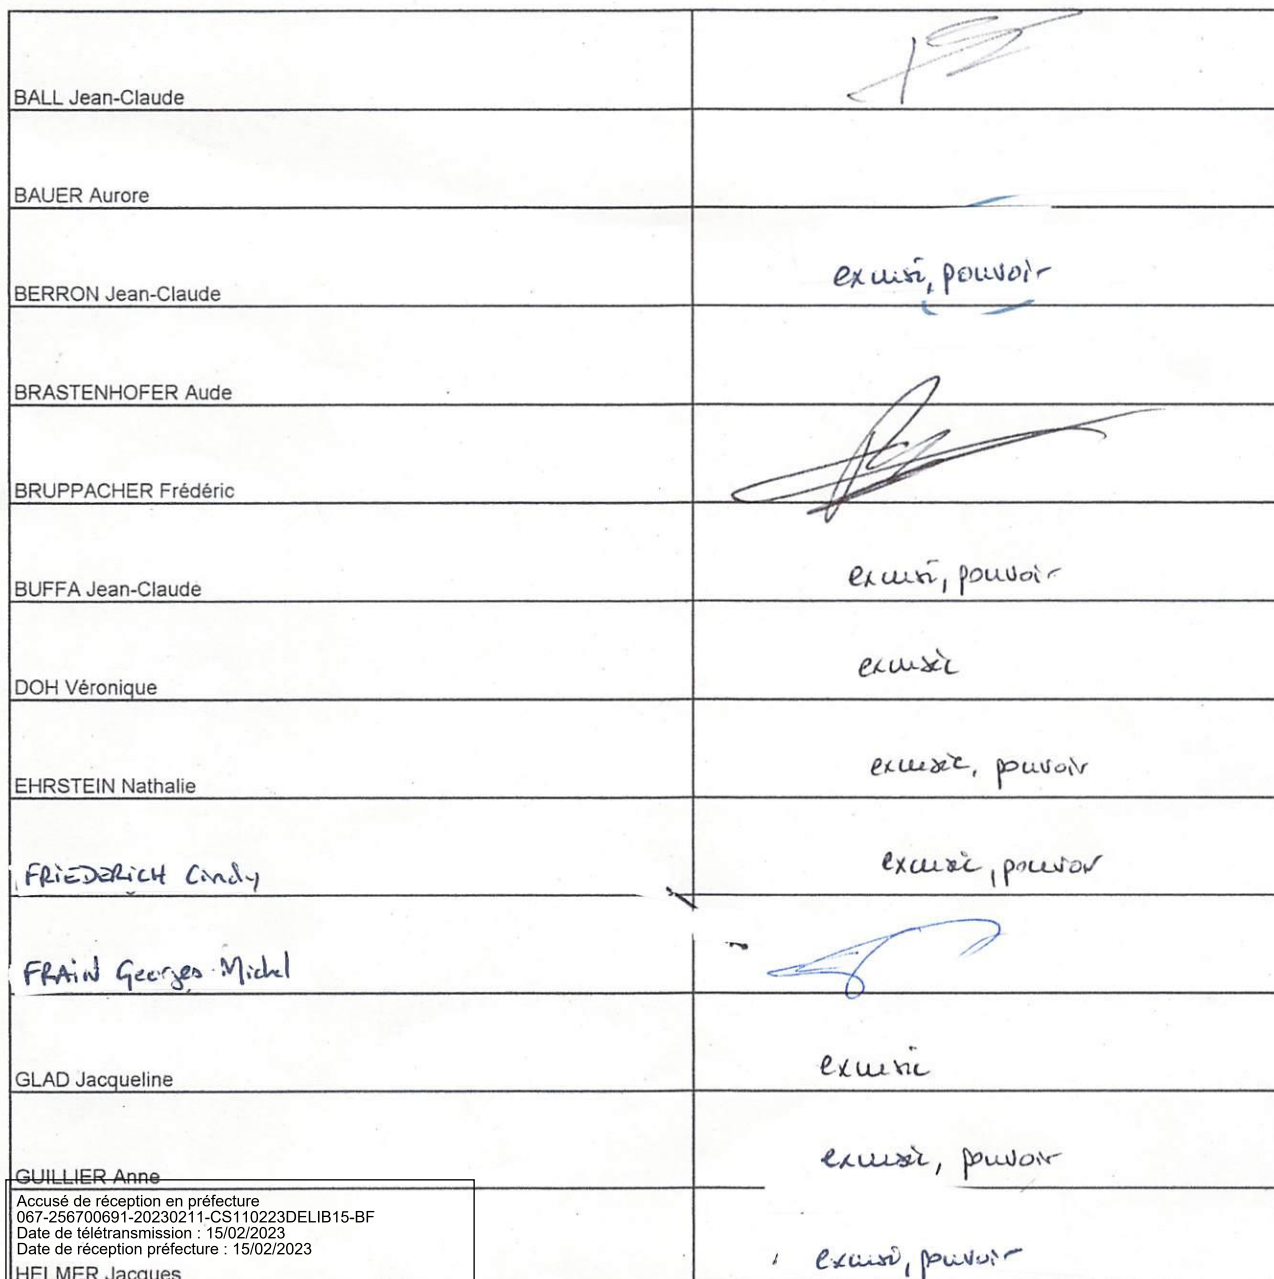 BALL Jean-Claude
BAUER Aurore
BERRON Jean-Claude excusé, pouvoir
BRASTENHOFER Aude
BRUPPACHER Frédéric
BUFFA Jean-Claude excusé, pouvoir
DOH Véronique excusée
EHRSTEIN Nathalie excusée, pouvoir
FRIEDERICH Cindy excusée, pouvoir
FRAIN Georges-Michel
GLAD Jacqueline excusée
GUILLIER Anne excusée, pouvoir
Accusé de réception en préfecture
067-256700691-20230211-CS110223DELIB15-BF
Date de télétransmission : 15/02/2023
Date de réception préfecture : 15/02/2023
HELMER Jacques excusé, pouvoir